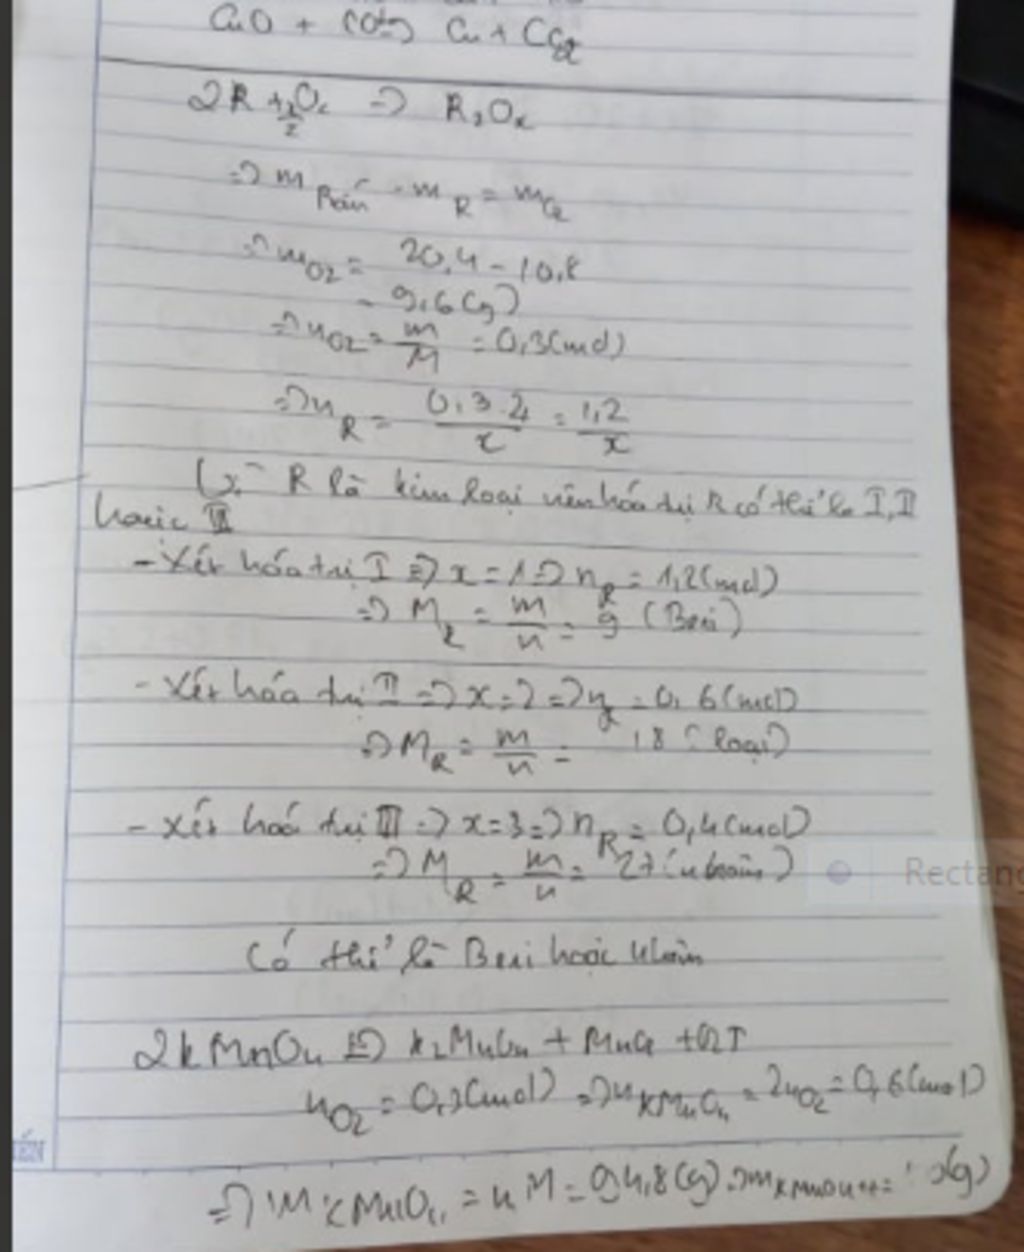 CuO + CO t° → Cu + CO2
2R + x/2 O2 => R2Ox
=> m Rắn - m R = m O2
=> mO2 = 20,4 - 10,8
= 9,6 (g)
=> nO2 = m/M = 0,3 (mol)
=> nR = 0,3.4/x = 1,2/x
Vì R là kim loại nên hóa trị R có thể là I, II
hoặc III
- Xét hóa trị I => x = 1 => nR = 1,2 (mol)
=> MR = m/n = 9 (Beri)
- Xét hóa trị II => x = 2 => nR = 0,6 (mol)
=> MR = m/n = 18 (loại)
- Xét hoá trị III => x = 3 => nR = 0,4 (mol)
=> MR = m/n = 27 (nhôm)
Có thể là Beri hoặc nhôm
2KMnO4 t° => K2MnO4 + MnO2 + O2↑
nO2 = 0,3 (mol) => nKMnO4 = 2nO2 = 0,6 (mol)
=> mKMnO4 = n.M = 94,8 (g) => mKMnO4 tt = (g)
Rectang